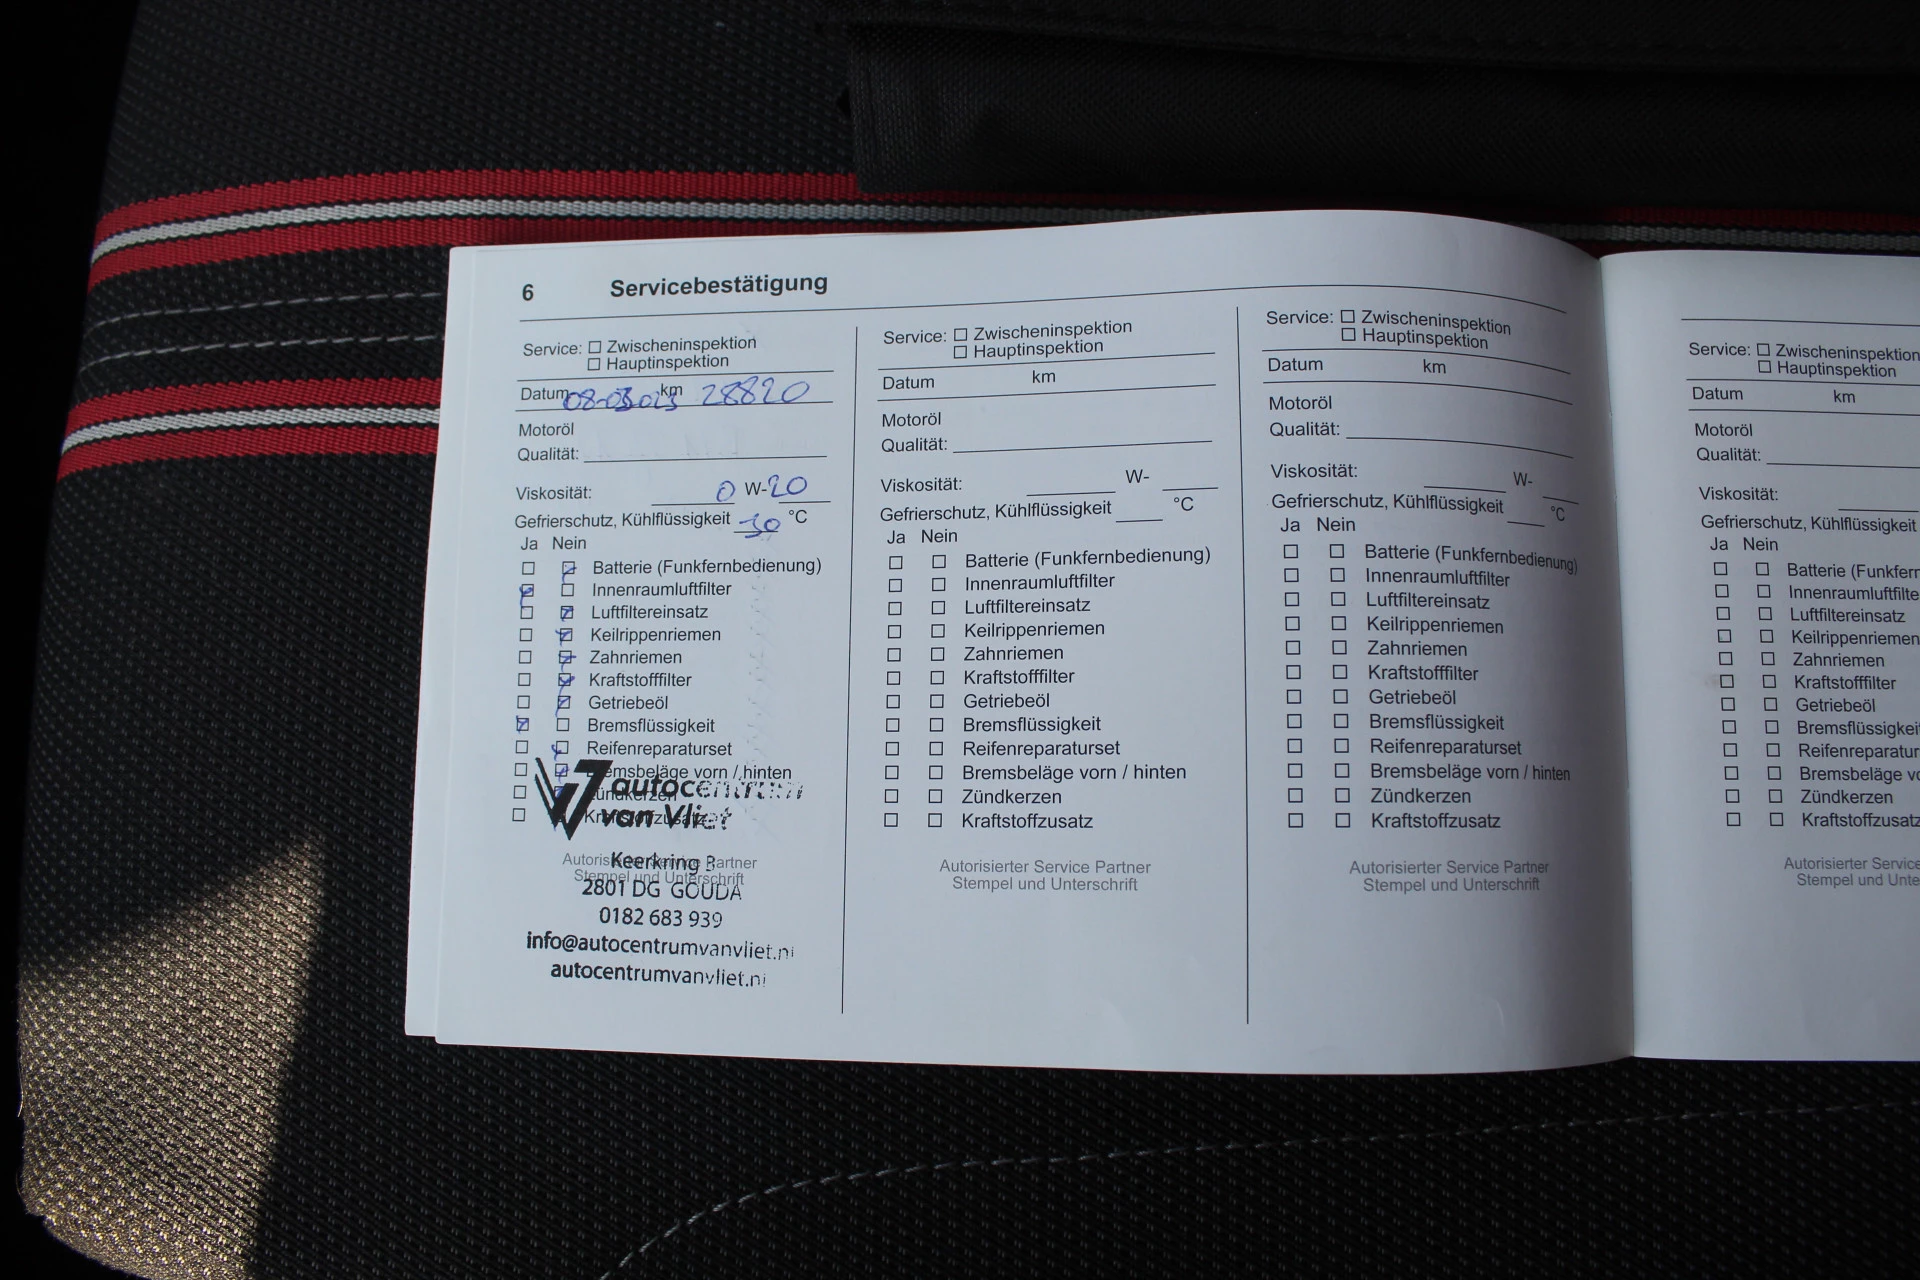 6 Servicebestätigung
Service: Zwischeninspektion
Hauptinspektion
Datum 08-03 km 28820
Motoröl
Qualität:
Viskosität: 0 W-20
Gefrierschutz, Kühlflüssigkeit -30 °C
Ja Nein
Batterie (Funkfernbedienung)
Innenraumluftfilter
Luftfiltereinsatz
Keilrippenriemen
Zahnriemen
Kraftstofffilter
Getriebeöl
Bremsflüssigkeit
Reifenreparaturset
Bremsbeläge vorn / hinten
Zündkerzen
Kraftstoffzusatz
autocentrum
van Vliet
Autorisierter Service Partner
Stempel und Unterschrift
Keerkring 3
2801 DG GOUDA
0182 683 939
info@autocentrumvanvliet.nl
autocentrumvanvliet.nl
Service: Zwischeninspektion
Hauptinspektion
Datum km
Motoröl
Qualität:
Viskosität: W-
Gefrierschutz, Kühlflüssigkeit °C
Ja Nein
Batterie (Funkfernbedienung)
Innenraumluftfilter
Luftfiltereinsatz
Keilrippenriemen
Zahnriemen
Kraftstofffilter
Getriebeöl
Bremsflüssigkeit
Reifenreparaturset
Bremsbeläge vorn / hinten
Zündkerzen
Kraftstoffzusatz
Autorisierter Service Partner
Stempel und Unterschrift
Service: Zwischeninspektion
Hauptinspektion
Datum km
Motoröl
Qualität:
Viskosität: W-
Gefrierschutz, Kühlflüssigkeit °C
Ja Nein
Batterie (Funkfernbedienung)
Innenraumluftfilter
Luftfiltereinsatz
Keilrippenriemen
Zahnriemen
Kraftstofffilter
Getriebeöl
Bremsflüssigkeit
Reifenreparaturset
Bremsbeläge vorn / hinten
Zündkerzen
Kraftstoffzusatz
Autorisierter Service Partner
Stempel und Unterschrift
Service: Zwischeninspektion
Hauptinspektion
Datum km
Motoröl
Qualität:
Viskosität:
Gefrierschutz, Kühlflüssigkeit
Ja Nein
Batterie (Funkfern
Innenraumluftfilte
Luftfiltereinsatz
Keilrippenriemen
Zahnriemen
Kraftstofffilter
Getriebeöl
Bremsflüssigkeit
Reifenreparatur
Bremsbeläge vo
Zündkerzen
Kraftstoffzusatz
Autorisierter Service
Stempel und Unte